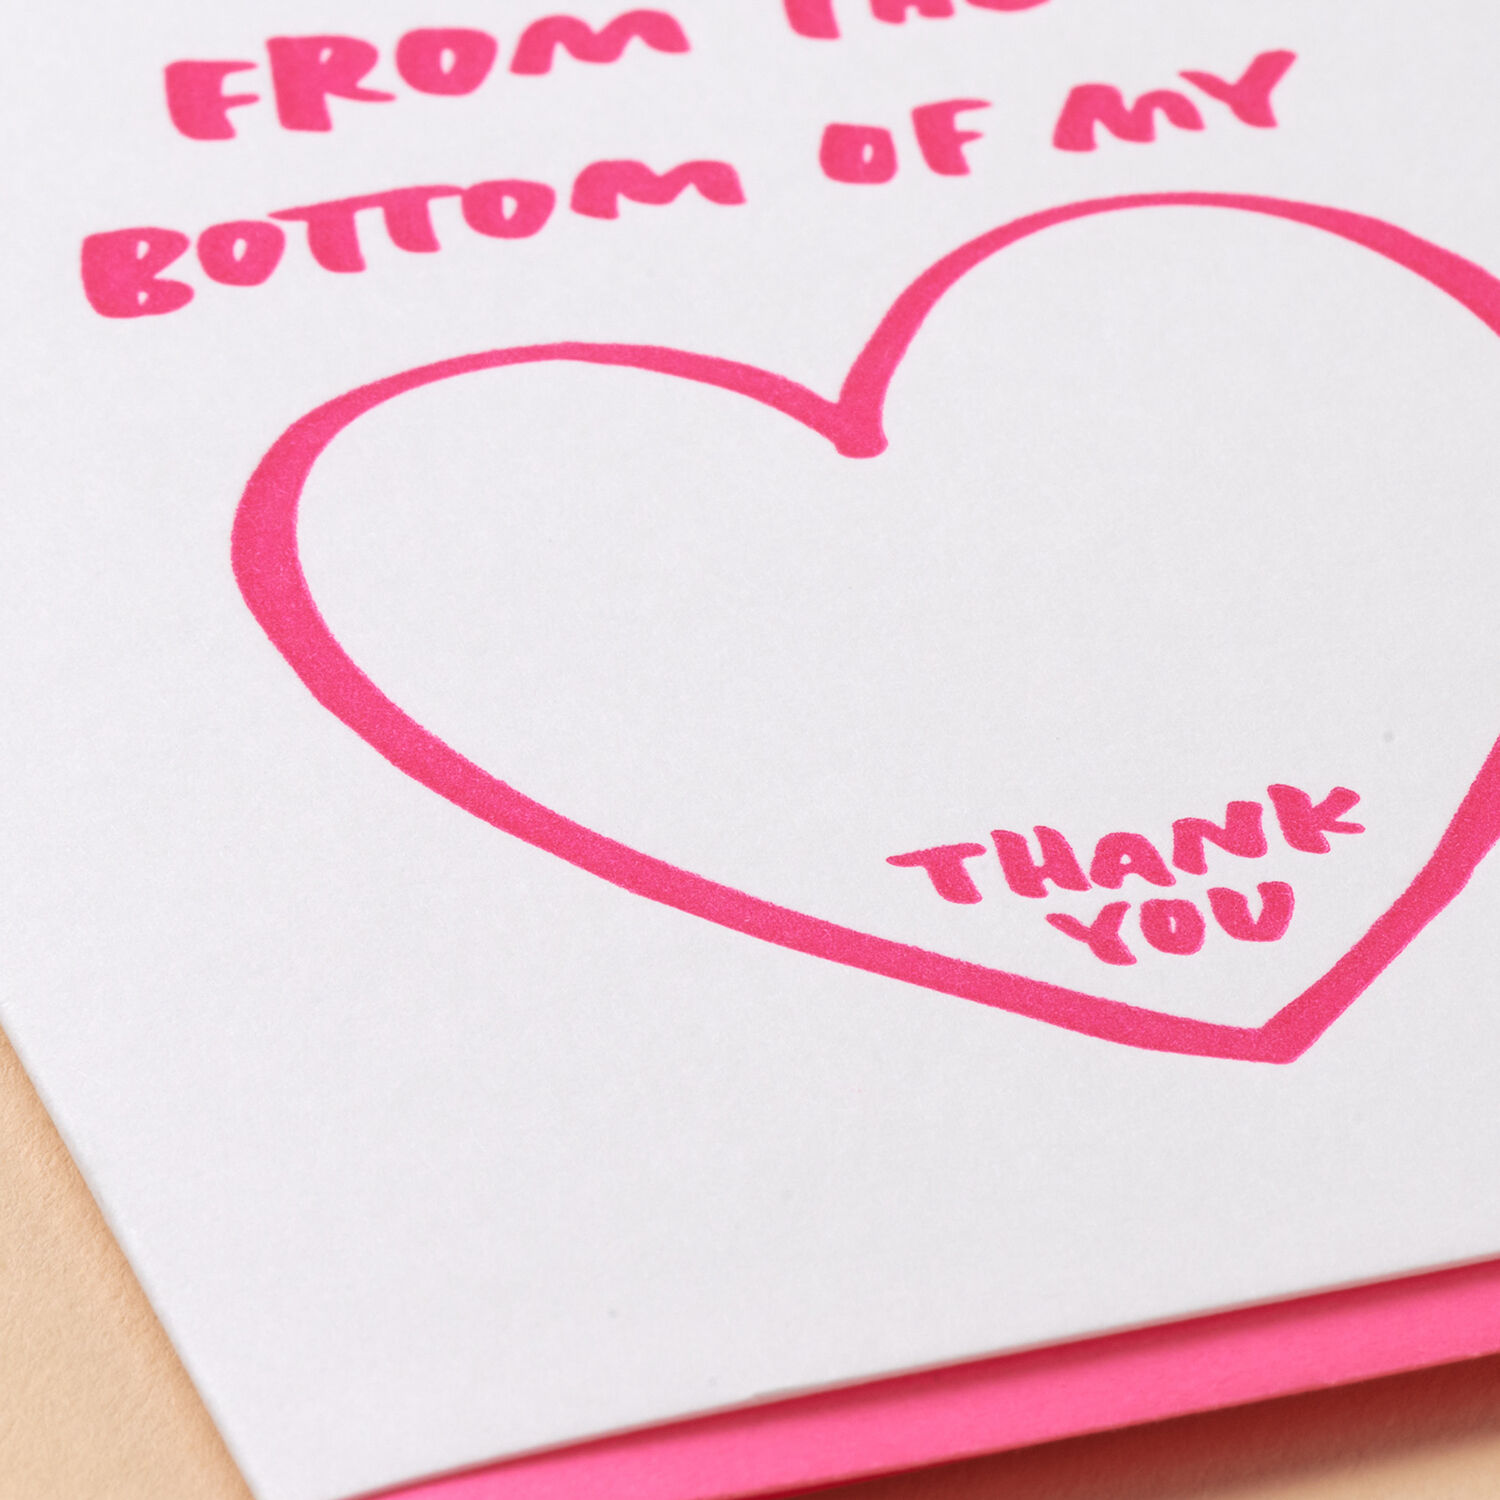 FROM THE
BOTTOM OF MY
THANK
YOU